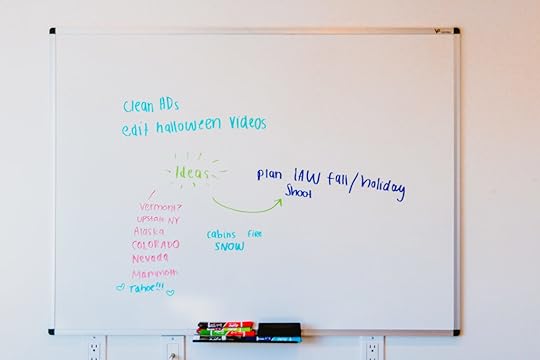 Clean HDs
edit halloween videos
Ideas
plan IAW fall/holiday
Shoot
Vermont?
UPState NY
Alaska
COLORADO
Nevada
Mammoth
Tahoe!!!
cabins fire
SNOW